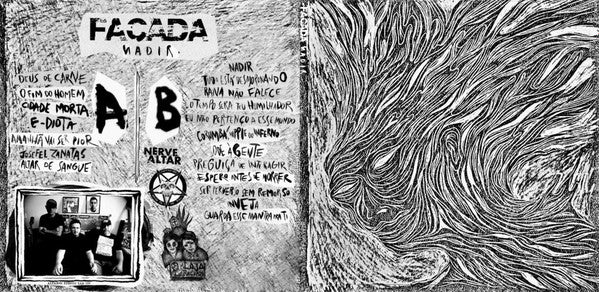 FACADA
NADIR.
A
B
DEUS DE CARNE
O FIM DO HOMEM
CIDADE MORTA
E-DIOTA
AMANHÃ VAI SER PIOR
JOSEFEL ZANATAS
ALTAR DE SANGUE
NERVE
ALTAR
NADIR
TUDO ESTÁ DESMORONANDO
RAIVA NÃO FALECE
O TEMPO SERÁ TEU HUMILHADOR
EU NÃO PERTENÇO A ESSE MUNDO
CORUMBÁ
INFERNO
A GENTE
PREGUIÇA DE INTERAGIR
ESPERO ANTES DE MORRER
SER PERVERSO SEM REMORSO
INVEJA
GUARDA ESSE MANTRA PRA TI